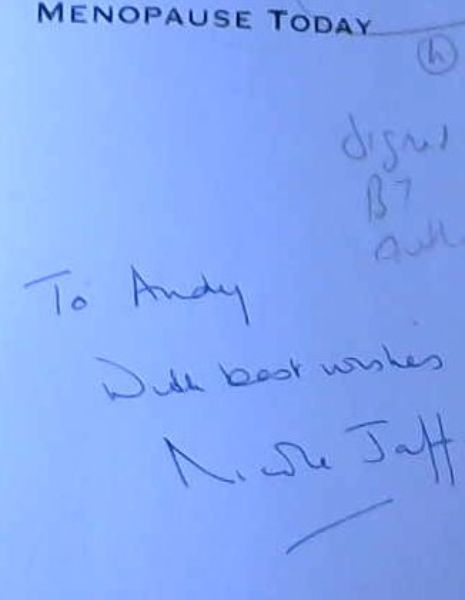 MENOPAUSE TODAY
h
Signed
By
Auth
To Andy
With best wishes
Nicole Jaff